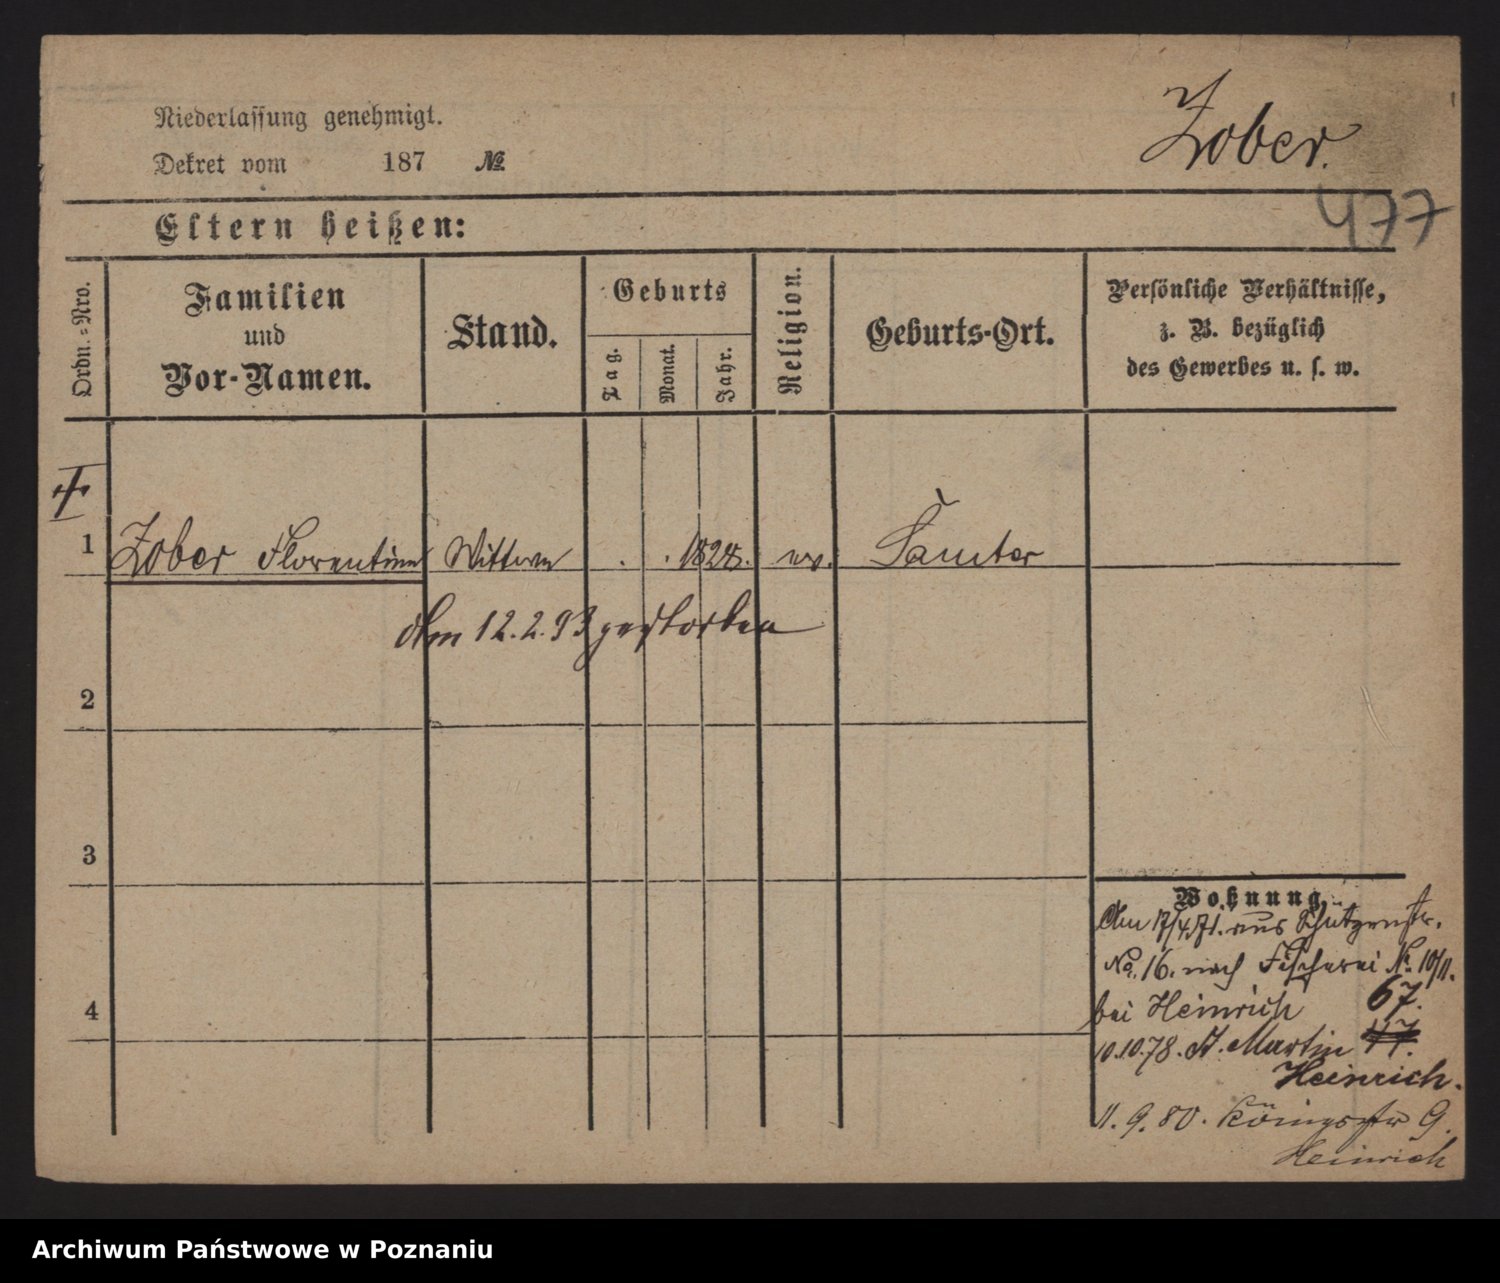 Niederlassung genehmigt.
Zober.
Dekret vom 187 №
477
Eltern heißen:
Ordn.-Nro.
Familien
und
Vor-Namen.
Stand.
Geburts
Tag.
Monat.
Jahr.
Religion.
Geburts-Ort.
Persönliche Verhältnisse,
z. B. bezüglich
des Gewerbes u. s. w.
1 Zober Florentine Wittwe . . 1828. ev. Samter
Am 12.2.93 gestorben
2
3
4
Wohnung.
Am 17/4.71. aus Schützenstr.
No. 16. nach Fischerei No. 10/11.
bei Heinrich 67.
10.10.78. St. Martin
Heinrich.
11.9.80. Königsstr 9.
Heinrich
Archiwum Państwowe w Poznaniu